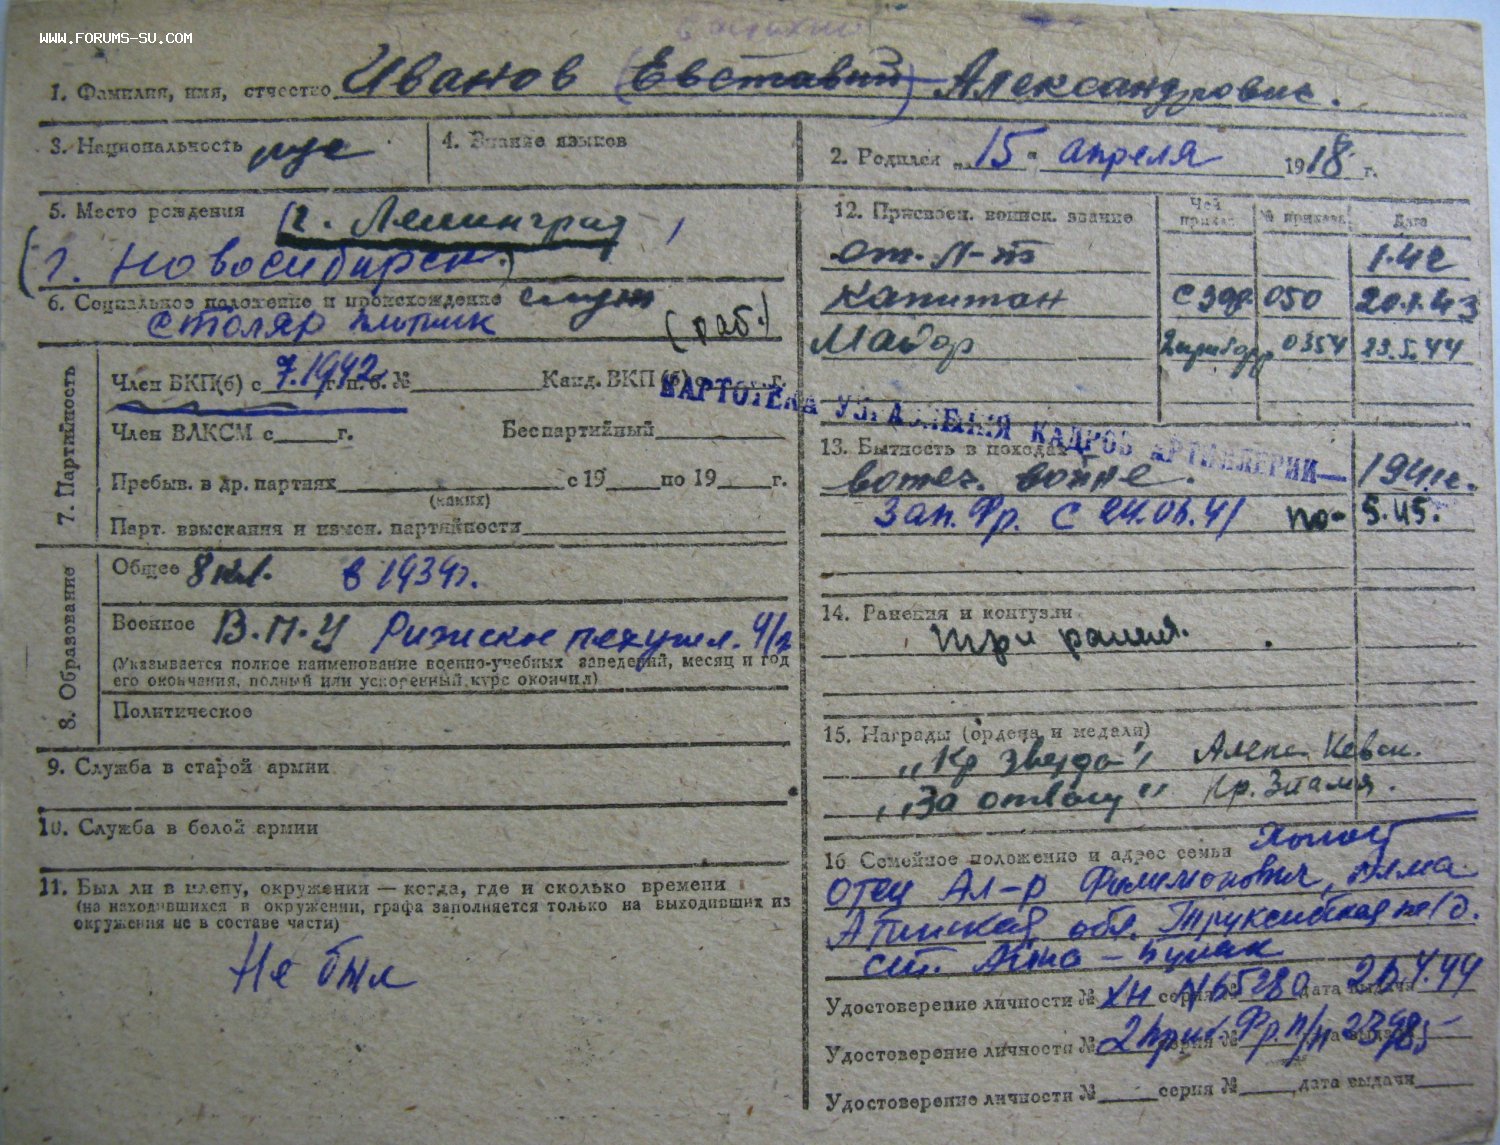 WWW.FORUMS-SU.COM
1. Фамилия, имя, отчество Иванов (Евставий) Александрович.
3. Национальность рус
4. Знание языков
2. Родился „15" апреля 1918 г.
5. Место рождения (г. Ленинград)
(г. Новосибирск)
6. Социальное положение и происхождение служ
столяр (раб.)
7. Партийность
Член ВКП(б) с 7.1942 г. п. б. № Канд. ВКП(б) с г.
Член ВЛКСМ с г. Беспартийный
Пребыв. в др. партиях с 19 по 19 г.
(каких)
Парт. взыскания и измен. партийности
8. Образование
Общее 8 кл. в 1934г.
Военное В.П.У Рижское пех. уч.
(Указывается полное наименование военно-учебных заведений, месяц и год
его окончания, полный или ускоренный курс окончил)
Политическое
9. Служба в старой армии
10. Служба в белой армии
11. Был ли в плену, окружении — когда, где и сколько времени
(на находившихся в окружении, графа заполняется только на выходивших из
окружения не в составе части)
Не был
12. Присвоен. воинск. звание Чей приказ № приказа Дата
ст. л-т 1.42
Капитан 050 20.1.43
Майор 2 приб фр. 0354 23.5.44
КАРТОТЕКА УПРАВЛЕНИЯ КАДРОВ АРТИЛЛЕРИИ
13. Бытность в походах
в отеч. войне. 1941г.
Зап. Фр. с 24.06.41 по- 5.45.
14. Ранения и контузии
три ранения.
15. Награды (ордена и медали)
„Кр Звезда", Алекс. Невск.
„За отвагу" Кр. Знамя.
16 Семейное положение и адрес семьи Холост
отец Ал-р Филимонович, Алма-
Атинская обл.
ст.
Удостоверение личности № ХН серия № N65280 дата выдачи 26.4.44
Удостоверение личности № 2 Приб. Фр. п/п серия № дата выдачи
Удостоверение личности № серия № дата выдачи